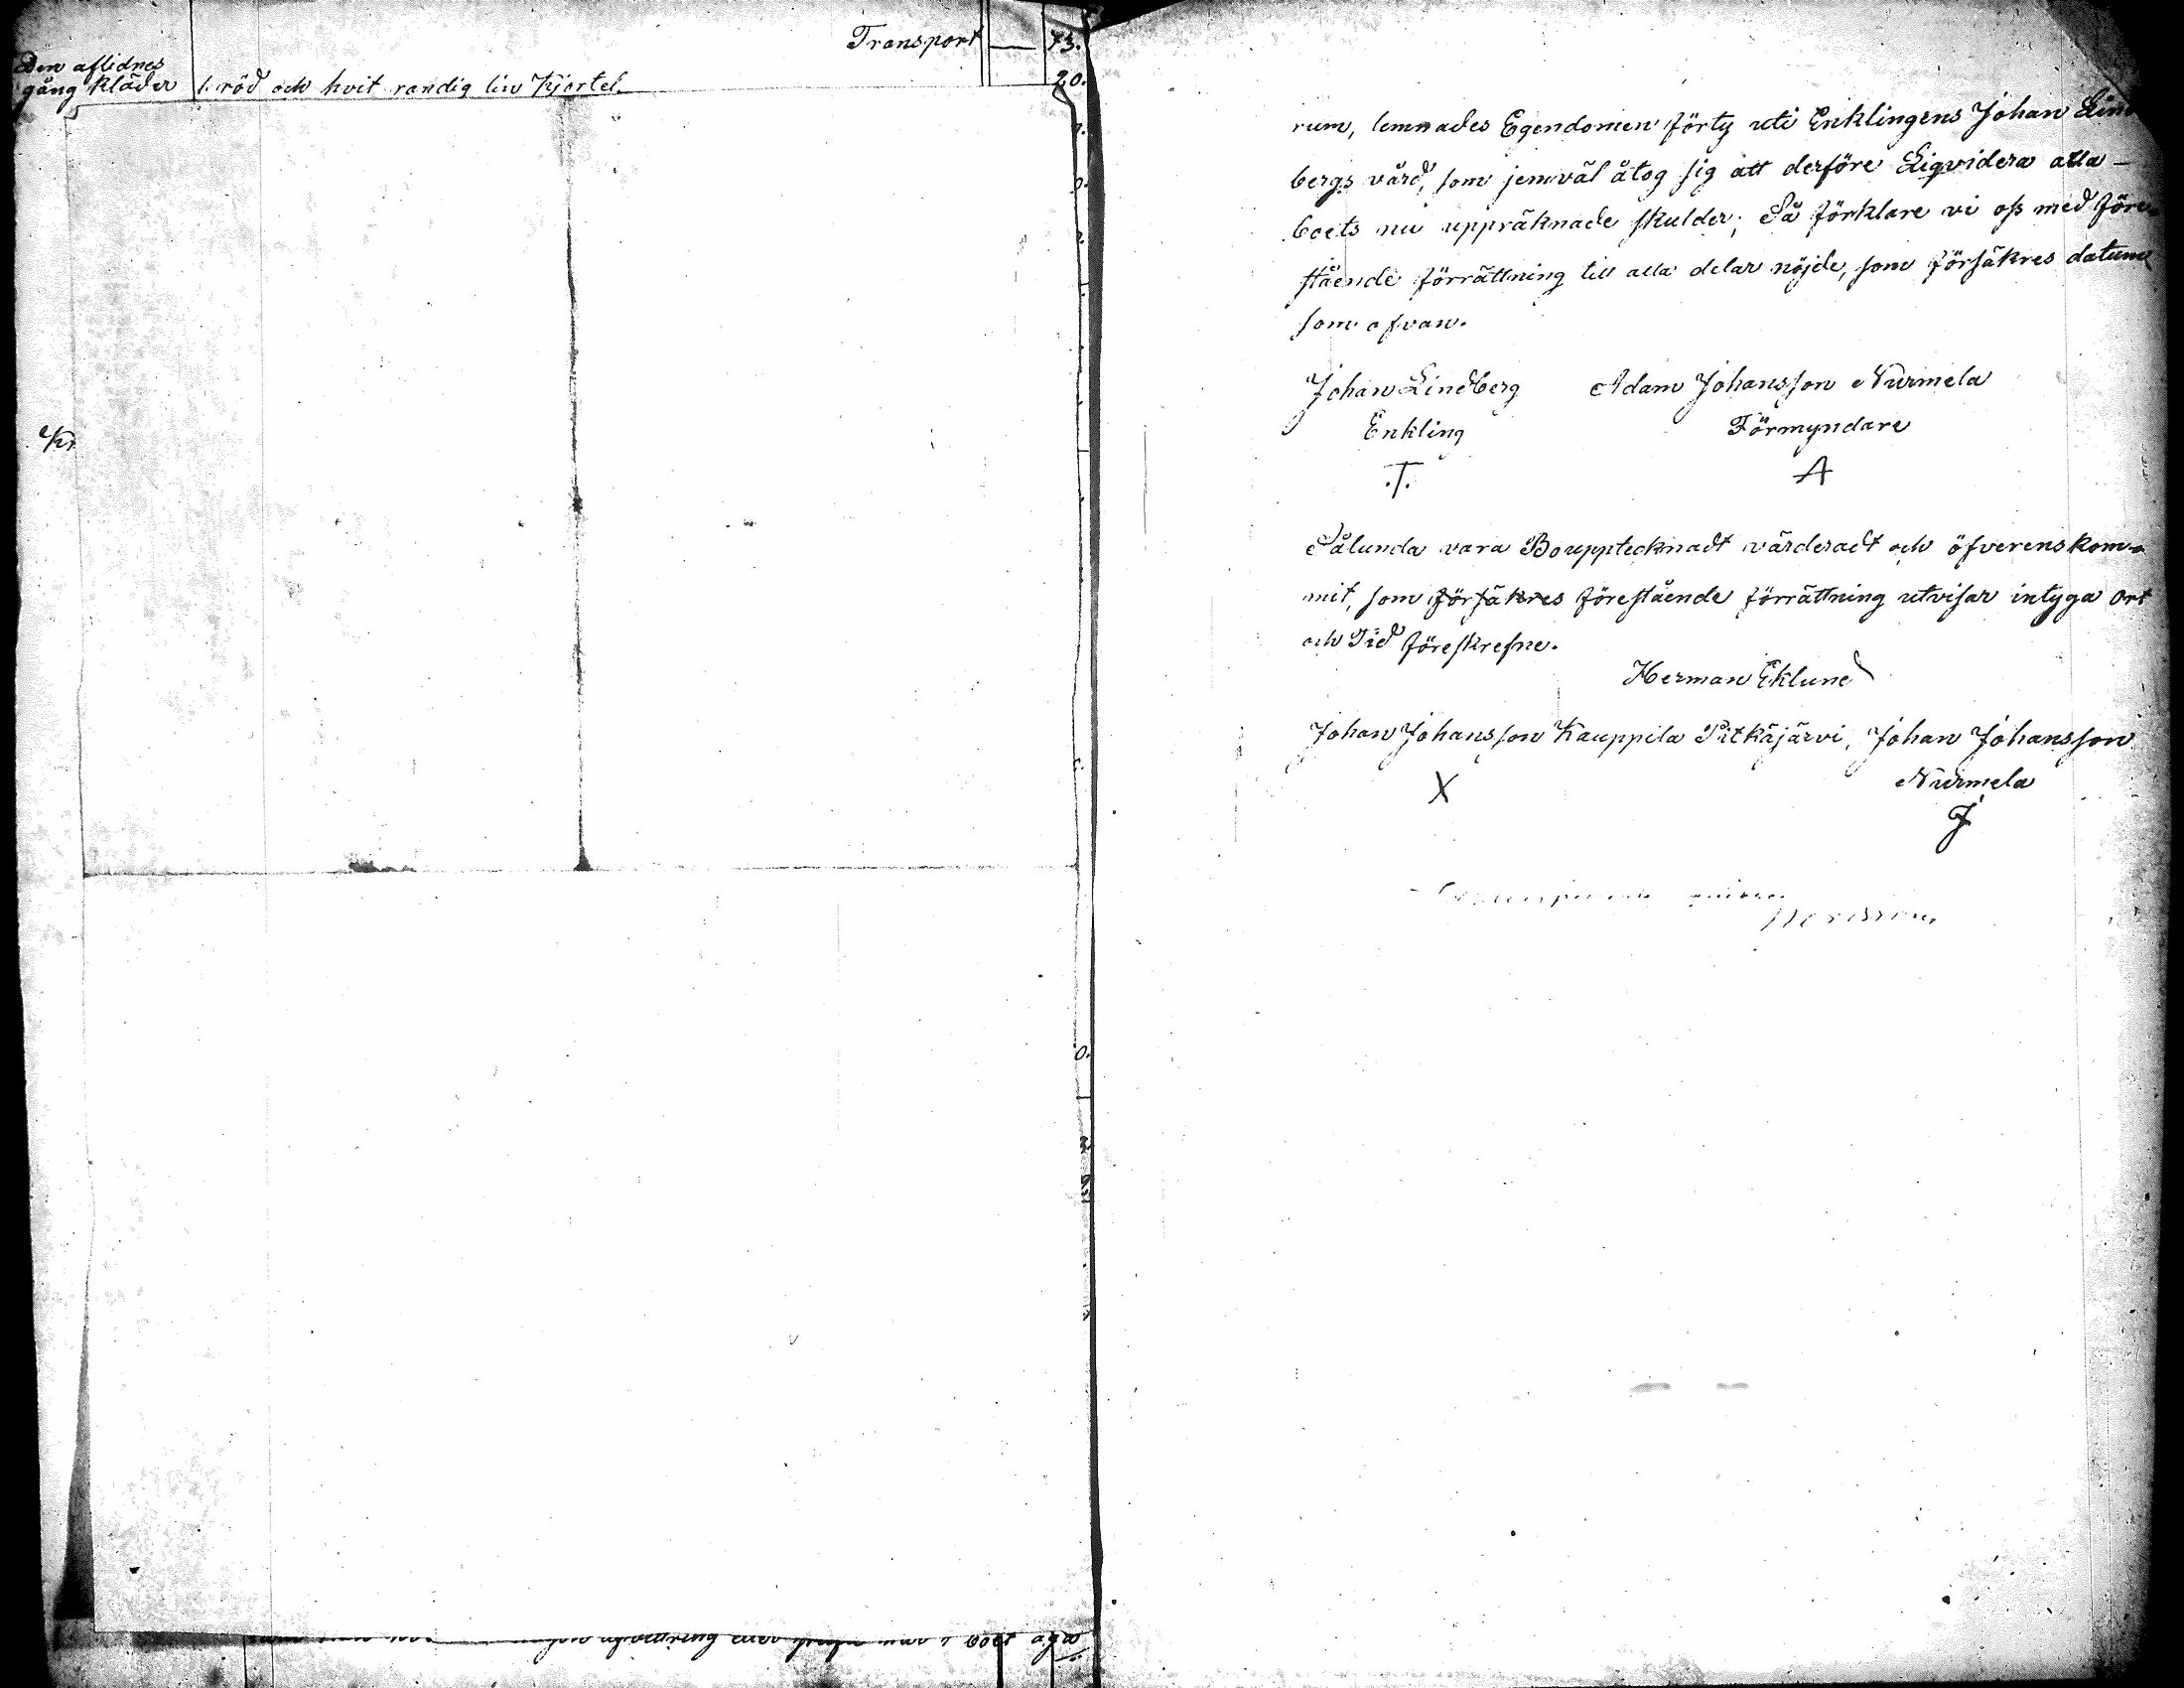 Transport — 73.
Den aflidnes
gång kläder 1. röd och hvit randig liv Kjortel. 20.
rum, lemnades Egendomen förty uti Enklingens Johan Lind
bergs vård, som jemväl åtog sig att derföre Liqvidera alla
boets nu uppräknade skulder; Så förklare vi oss med före-
stående förrättning till alla delar nöjde, som försäkres datum
som ofvan.
Johan Lindberg Adam Johansson Nurmela
Enkling Förmyndare
.T. A
Sålunda vara Bouppteknadt värderadt och öfverenskom-
mit, som försäkres förestående förrättning utvisar intyga Ort
och Tid föreskrefne.
Herman Eklund
Johan Johansson Kauppila Pitkäjärvi, Johan Johansson
X Nurmela
J
boet äga